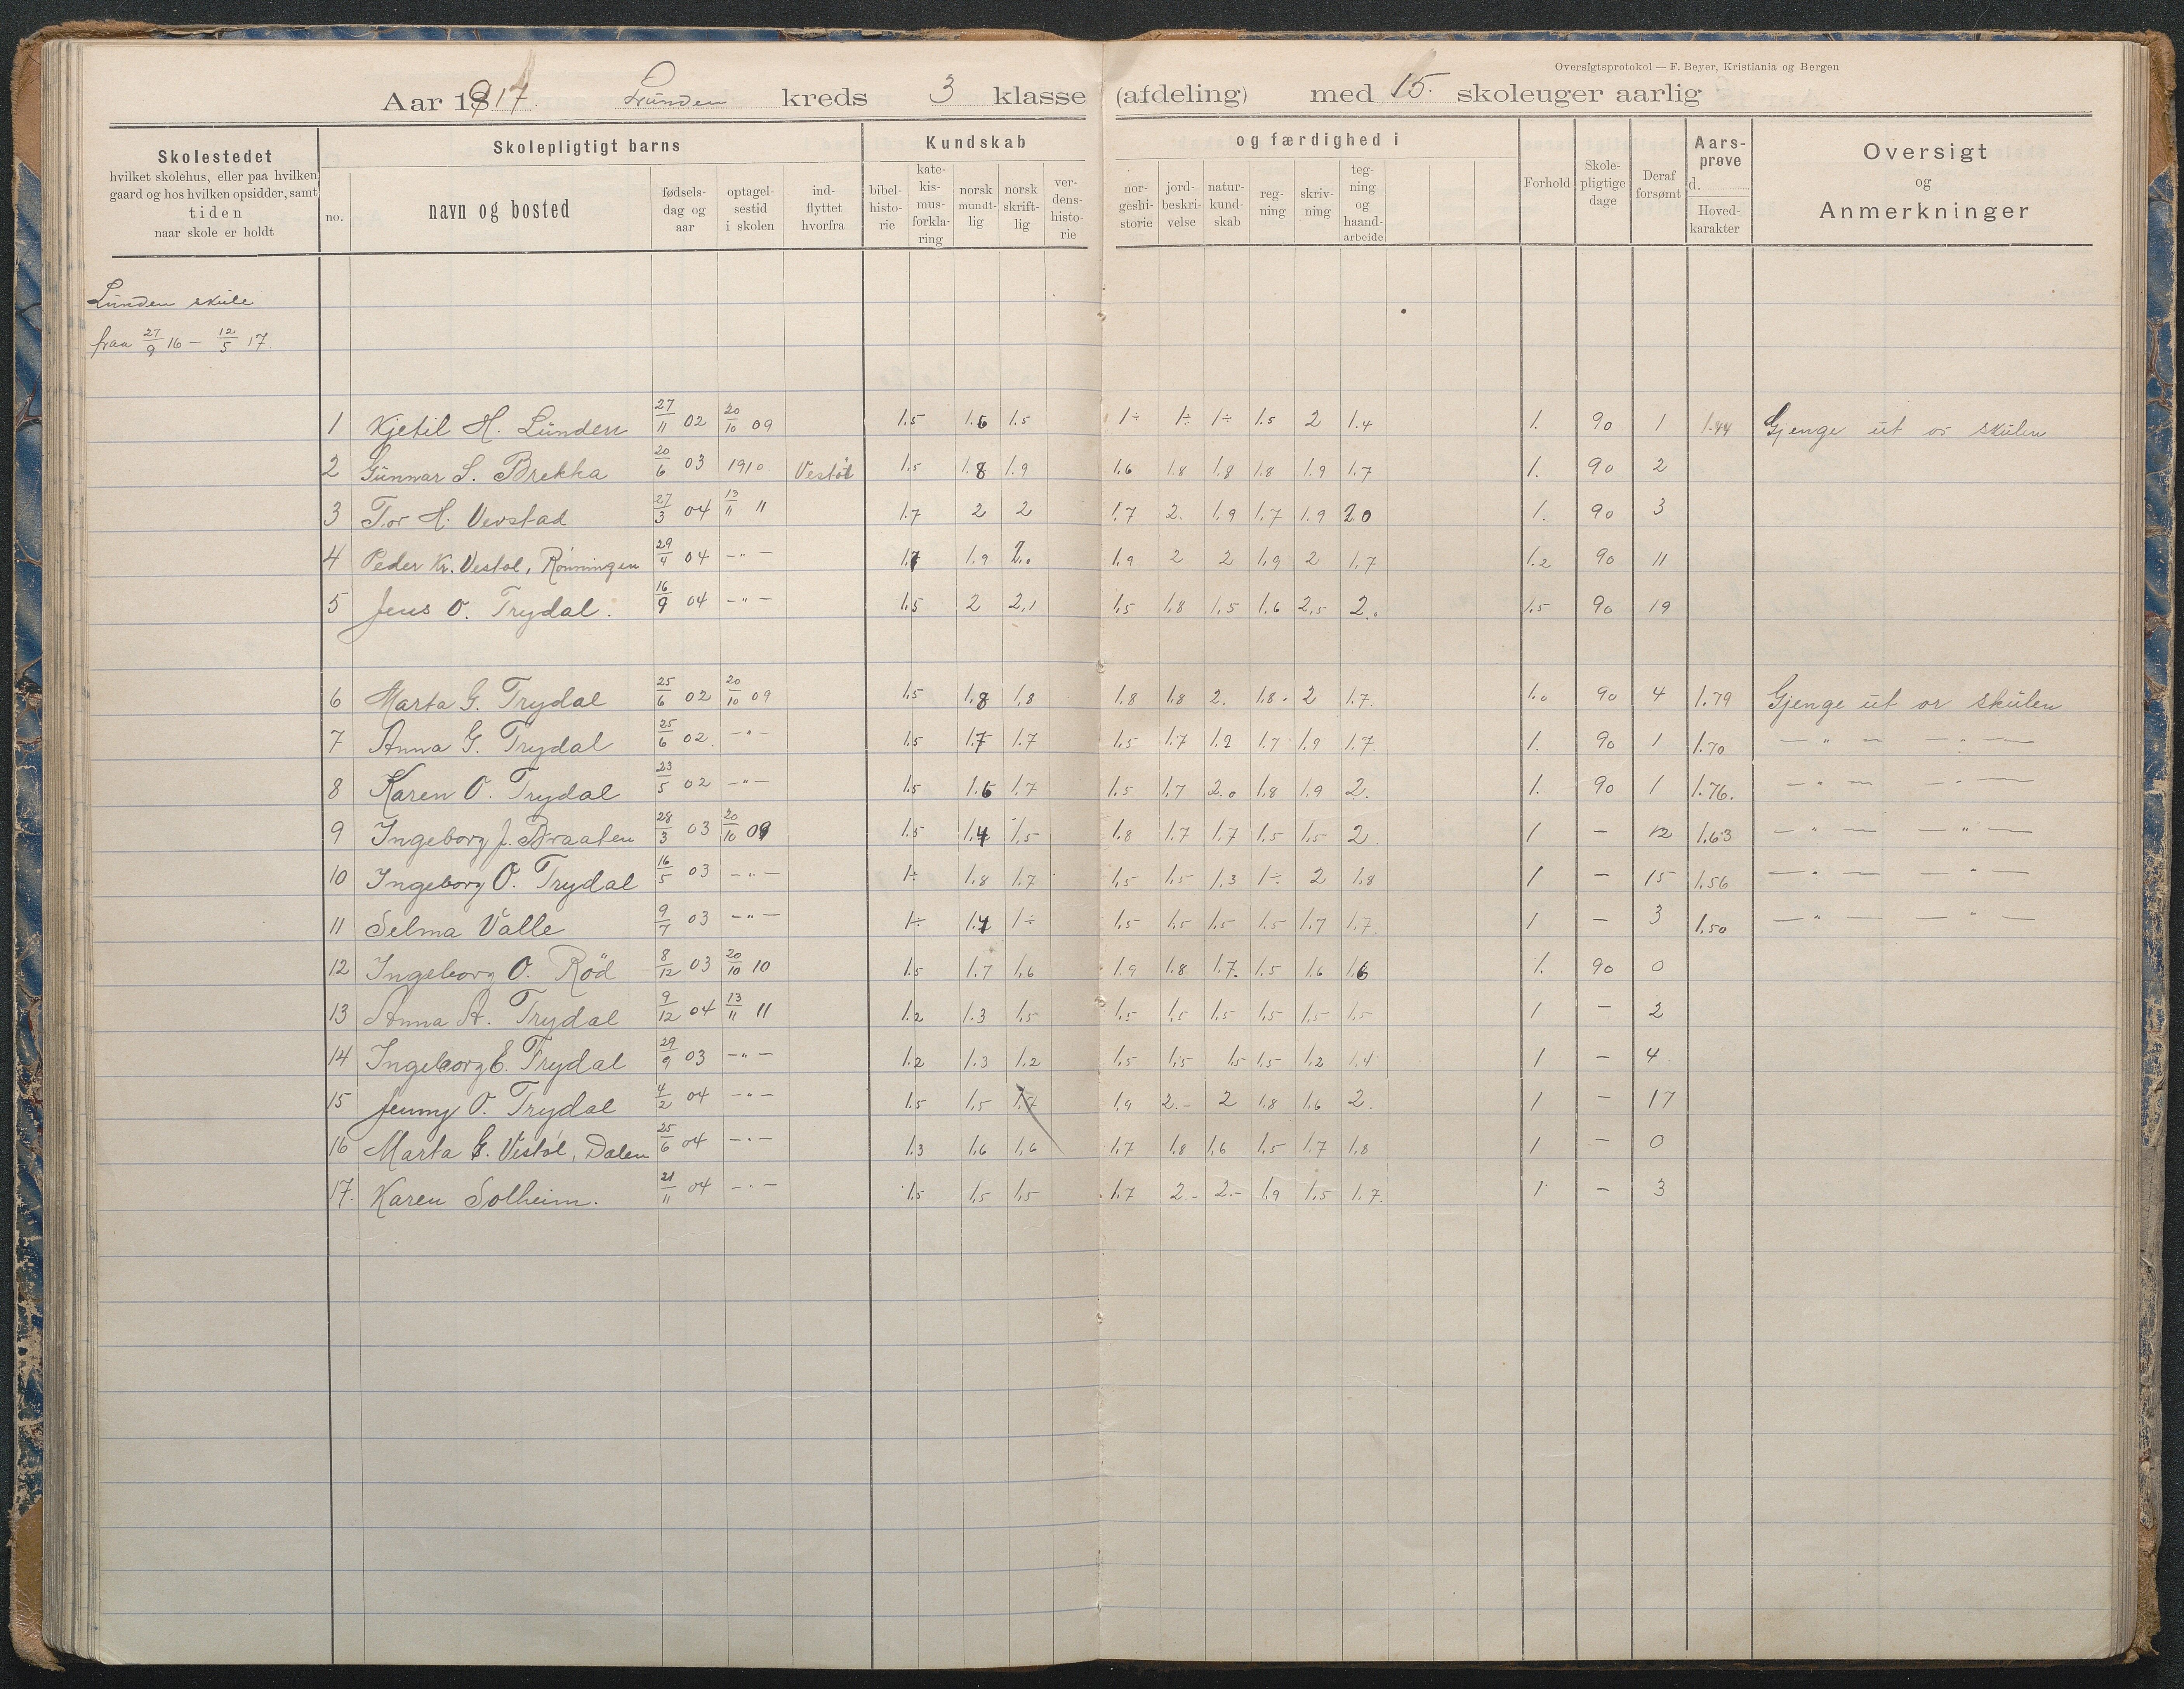 Oversigtsprotokol — F. Beyer, Kristiania og Bergen
Aar 1917. Lunden kreds 3 klasse (afdeling) med 15. skoleuger aarlig
Skolestedet
hvilket skolehus, eller paa hvilken
gaard og hos hvilken opsidder, samt
tiden
naar skole er holdt
Skolepligtigt barns
no.
navn og bosted
fødsels-
dag og
aar
optagel-
sestid
i skolen
ind-
flyttet
hvorfra
Kundskab
bibel-
histo-
rie
kate-
kis-
mus-
forkla-
ring
norsk
mundt-
lig
norsk
skrift-
lig
ver-
dens-
histo-
rie
og færdighed i
nor-
geshi-
storie
jord-
beskri-
velse
natur-
kund-
skab
reg-
ning
skriv-
ning
teg-
ning
og
haand-
arbeide
Forhold
Skole-
pligtige
dage
Deraf
forsømt
Aars-
prøve
d.
Hoved-
karakter
Oversigt
og
Anmerkninger
Lunden skule
fraa 27/9 16 — 12/5 17.
1 Kjetil H. Lunden 27/11 02 20/10 09 1.5 1.6 1.5 1÷ 1÷ 1÷ 1.5 2 1.4 1. 90 1 1.44 Gjenge ut or skulen
2 Gunnar S. Brekka 20/6 03 1910. Vestøl 1.5 1.8 1.9 1.6 1.8 1.8 1.8 1.9 1.7 1. 90 2
3 Tor H. Vevstad 27/3 04 13/11 11 1.7 2 2 1.7 2. 1.9 1.7 1.9 2.0 1. 90 3
4 Peder Kr. Vestøl, Rønningen 29/4 04 —"— 1.7 1.9 2.0 1.9 2 2 1.9 2 1.7 1.2 90 11
5 Jens O. Trydal. 16/9 04 —"— 1.5 2 2,1 1.5 1.8 1.5 1.6 2,5 2.0 1.5 90 19
6 Marta G. Trydal 25/6 02 20/10 09 1.5 1.8 1.8 1.8 1.8 2. 1.8. 2 1.7. 1.0 90 4 1.79 Gjenge ut or skulen
7 Anna G. Trydal 25/6 02. —"— 1.5 1.7 1.7 1.5 1.7 1.9 1.7 1.9 1.7. 1. 90 1 1.70 — " — — " —
8 Karen O. Trydal 23/5 02 —"— 1.5 1.6 1.7 1.5 1.7 2.0 1.8 1.9 2. 1. 90 1 1.76. — " — — " —
9 Ingeborg J. Braaten 28/3 03 20/10 09 1.5 1.4 1.5 1.8 1.7 1.7 1.5 1.5 2. 1 — 12 1.63 — " — — " —
10 Ingeborg O. Trydal 16/5 03 —"— 1÷ 1.8 1.7 1.5 1.5 1.3 1÷ 2 1.8 1 — 15 1.56 — " — — " —
11 Selma Valle 9/7 03 —"— 1÷ 1.4 1÷ 1.5 1.5 1.5 1.5 1.7 1.7. 1 — 3 1.50 — " — — " —
12 Ingeborg O. Röd 8/12 03 20/10 10 1.5 1.7 1.6 1.9 1.8 1.7. 1.5 1.6 1.6 1. 90 0
13 Anna A. Trydal 9/12 04 13/11 11 1.2 1.3 1.5 1.5 1.5 1.5 1.5 1.5 1.5 1 — 2
14 Ingeborg E. Trydal 29/9 03 —"— 1.2 1.3 1.2 1.5 1.5 1.5 1.5 1.2 1.4 1 — 4
15 Jenny O. Trydal 4/2 04 —"— 1.5 1.5 1.7 1.9 2.- 2 1.8 1.6 2. 1 — 17
16 Marta G. Vestøl, Dalen 25/6 04 —"— 1.3 1.6 1.6 1.7 1.8 1.6 1.5 1.7 1.8 1 — 0
17. Karen Solheim. 21/11 04 —"— 1.5 1.5 1.5 1.7 2.- 2.- 1.9 1.5 1.7. 1 — 3